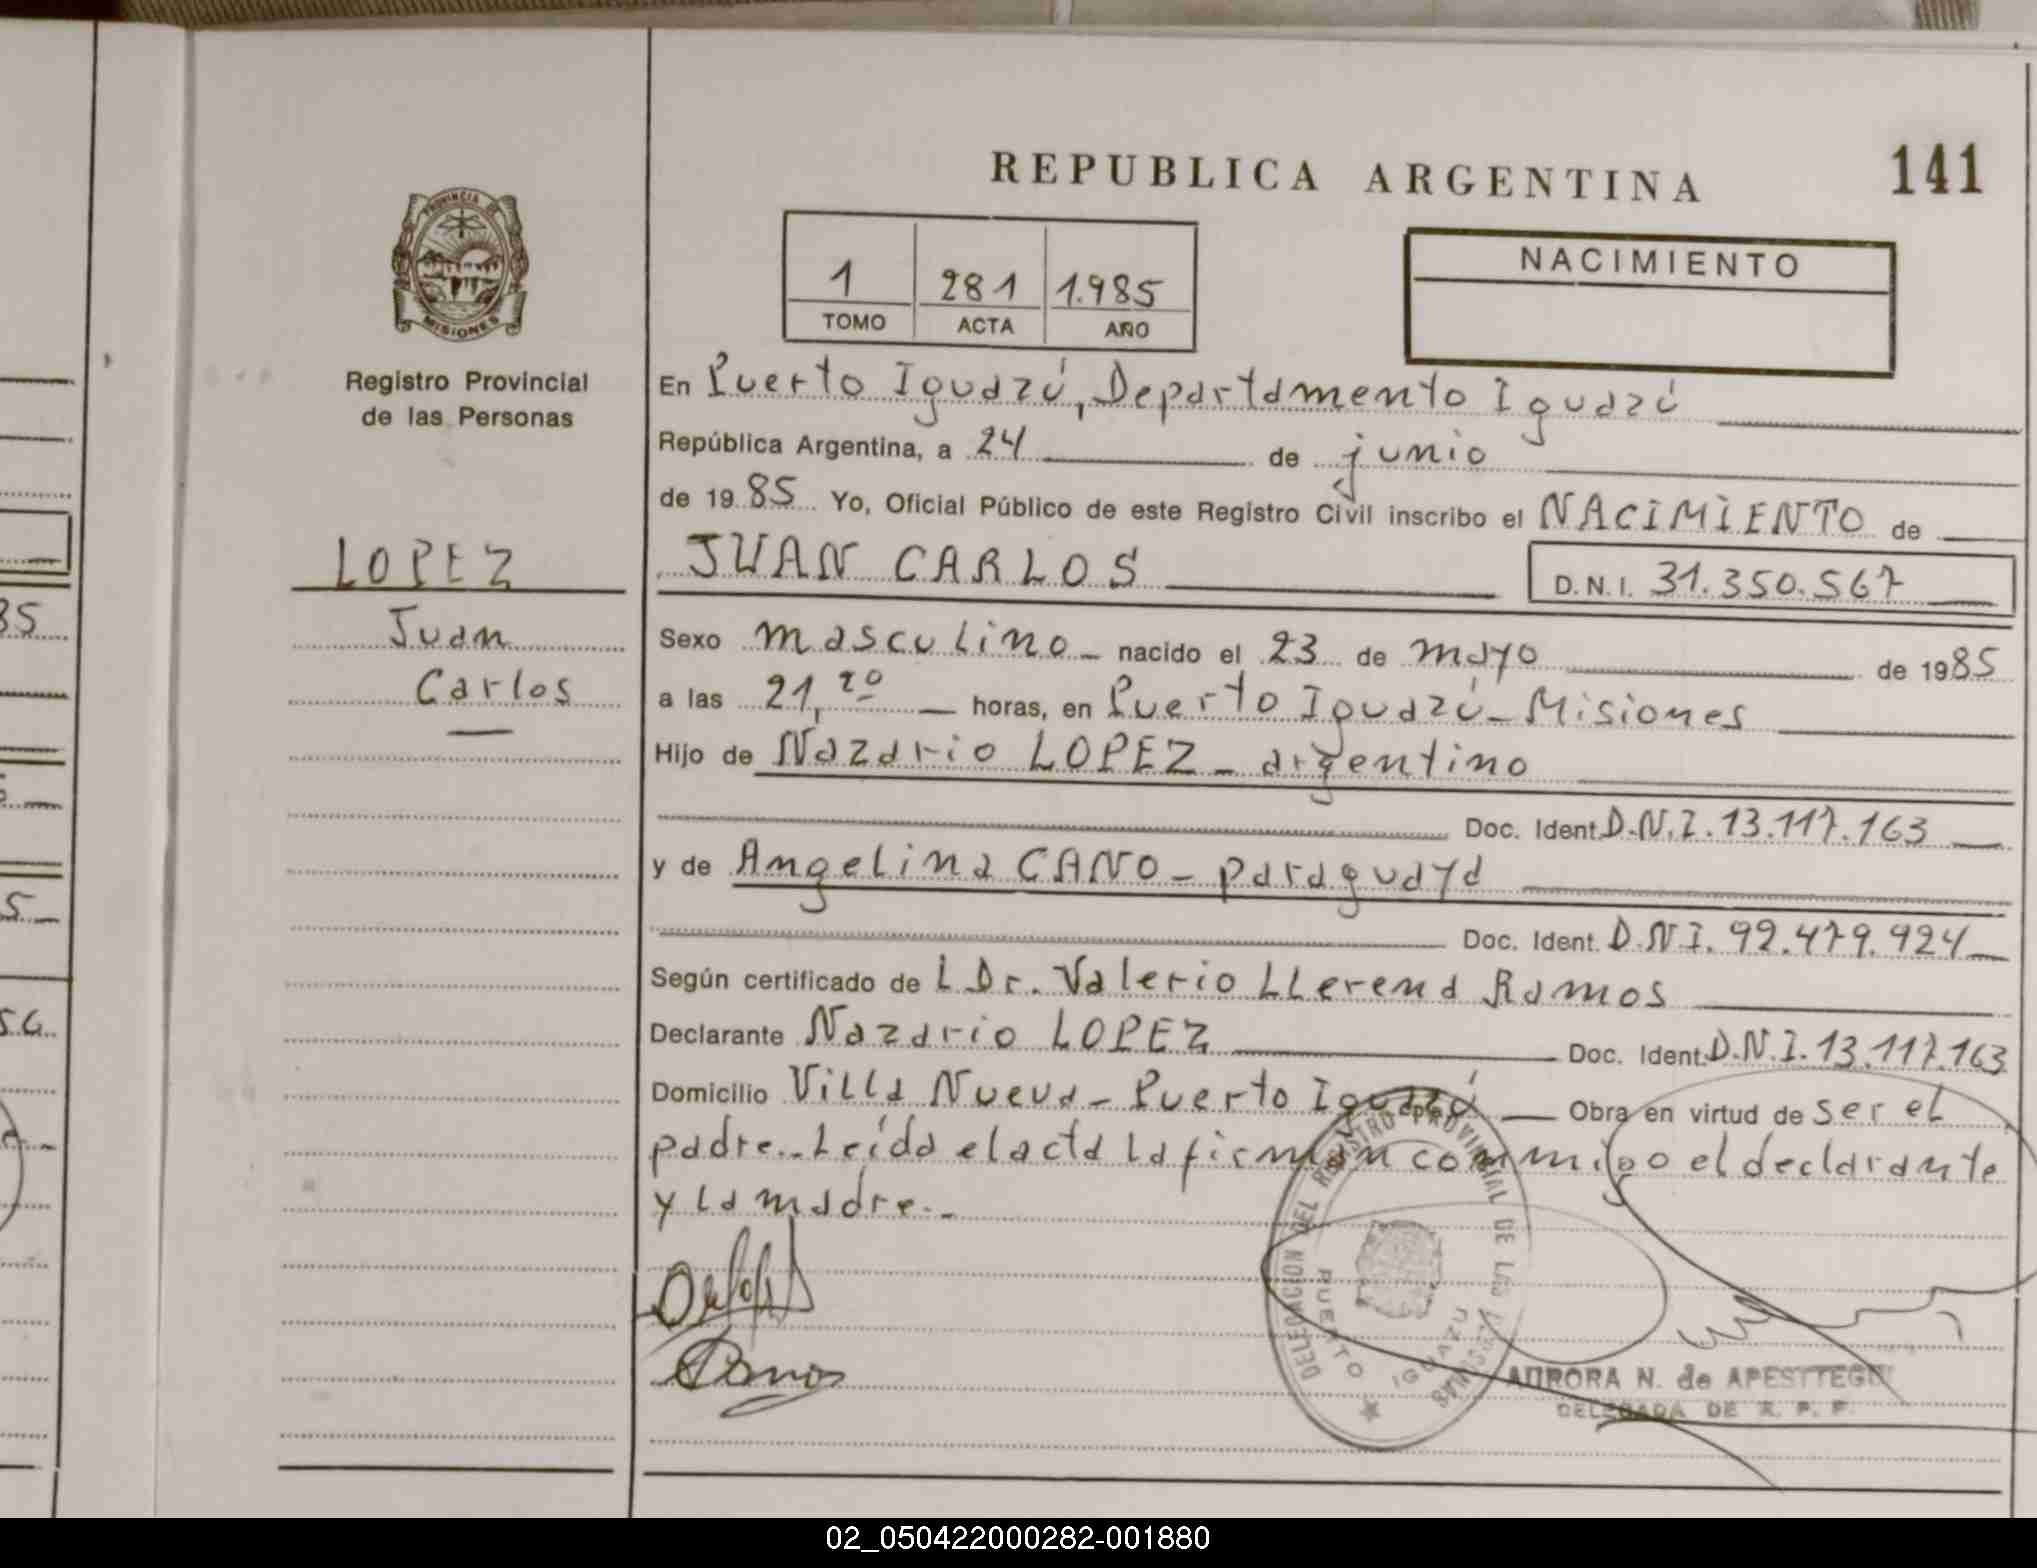 REPUBLICA ARGENTINA
141
PROVINCIA DE
MISIONES
Registro Provincial
de las Personas
1 281 1.985
TOMO ACTA AÑO
NACIMIENTO
En Puerto Iguazú, Departamento Iguazú
República Argentina, a 24 de junio
de 1985 Yo, Oficial Público de este Registro Civil inscribo el NACIMIENTO de
JUAN CARLOS
D.N.I. 31.350.567
LOPEZ
Juan
Carlos
Sexo masculino - nacido el 23 de mayo de 1985
a las 21,20 horas, en Puerto Iguazú - Misiones
Hijo de Nazario LOPEZ - argentino
Doc. Ident. D.N.I. 13.117.163
y de Angelina CANO - paraguaya
Doc. Ident. D.N.I. 92.479.924
Según certificado de L Dr. Valerio LLerena Ramos
Declarante Nazario LOPEZ Doc. Ident. D.N.I. 13.117.163
Domicilio Villa Nueva - Puerto Iguazú Obra en virtud de ser el
padre.- Leída el acta la firman conmigo el declarante
y la madre.-
DELEGACION DEL REGISTRO PROVINCIAL DE LAS PERSONAS
PUERTO IGUAZU
AURORA N. de APESTTEGUI
DELEGADA DE R. P. P.
85
5
02_050422000282-001880